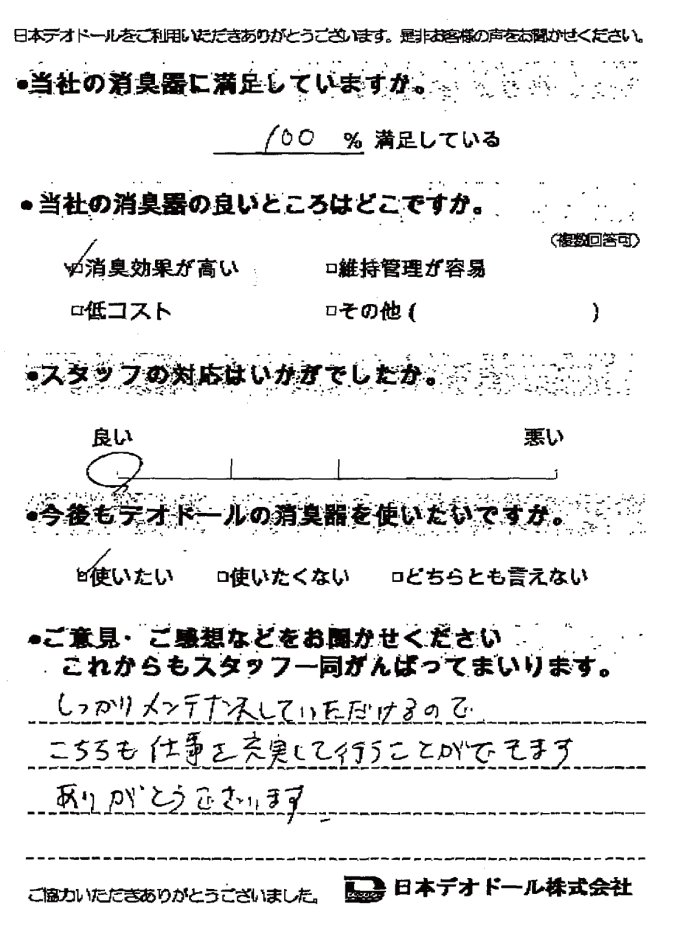 日本デオドールをご利用いただきありがとうございます。是非お客様の声をお聞かせください。
•当社の消臭器に満足していますか。
100 % 満足している
•当社の消臭器の良いところはどこですか。
(複数回答可)
☑消臭効果が高い □維持管理が容易
□低コスト □その他 ( )
•スタッフの対応はいかがでしたか。
良い 悪い
•今後もデオドールの消臭器を使いたいですか。
☑使いたい □使いたくない □どちらとも言えない
•ご意見・ご感想などをお聞かせください
これからもスタッフ一同がんばってまいります。
しっかりメンテナンスしていただけるので
こちらも仕事を充実して行うことができます
ありがとうございます
ご協力いただきありがとうございました。 日本デオドール株式会社